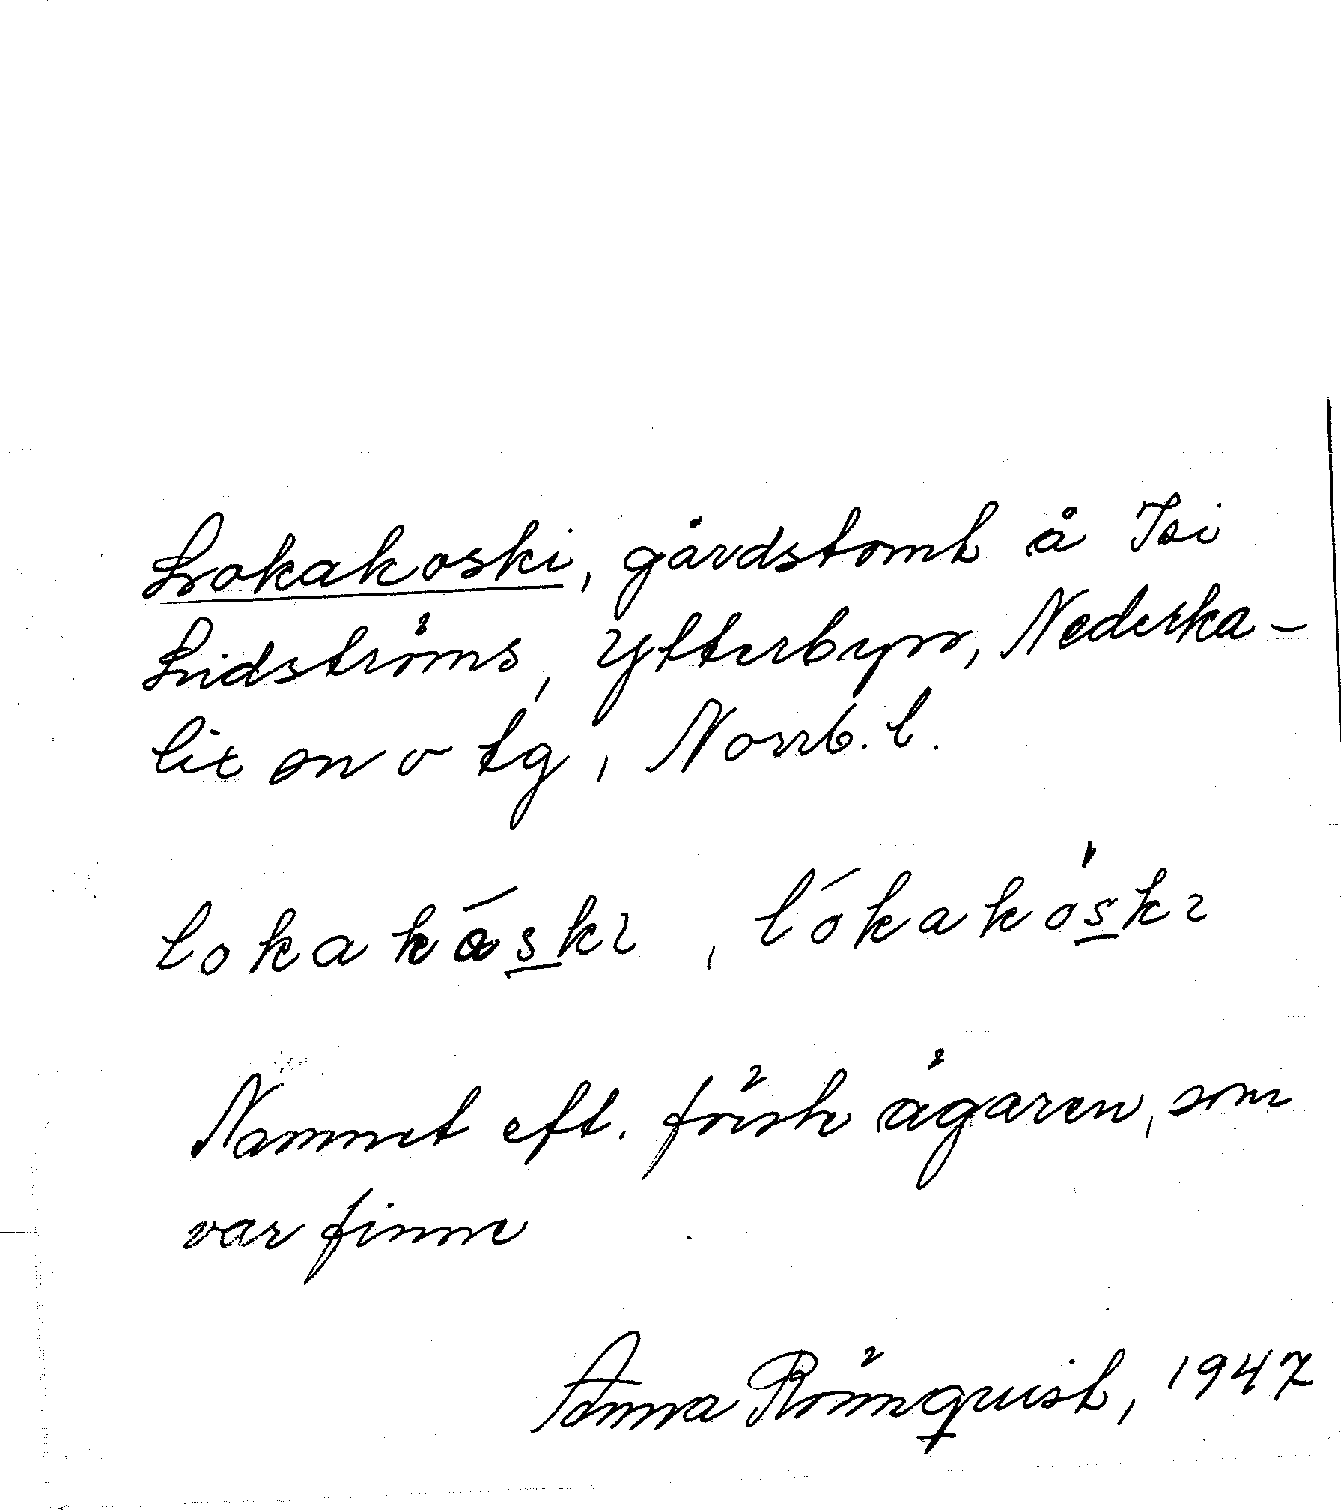 Lokakoski, gårdstomt å Isi
Lidströms, Ytterbyn, Nederka-
lix sn o tg, Norrb. l.
lokakåskı, lókakóskı
Namnet eft. förste ägaren, som
var finne
Anna Rönnquist, 1947